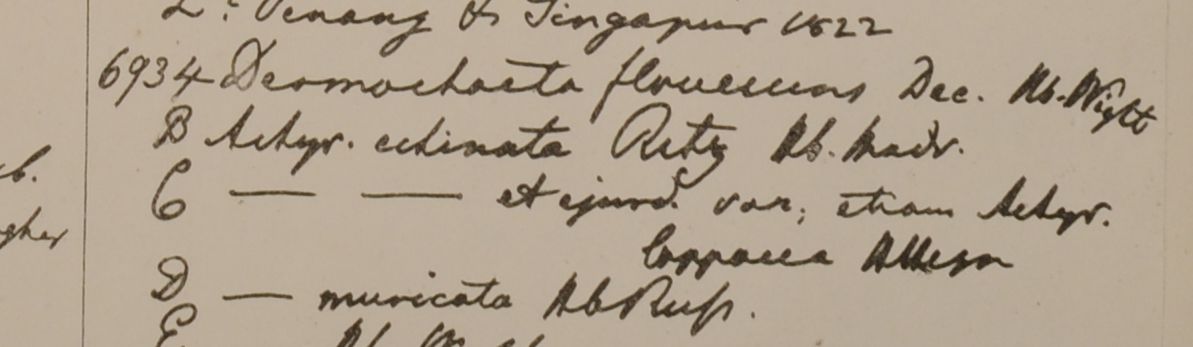 2. Penang & Singapur 1822
6934 Desmochaeta flavescens Dec. Hb. Wight
B Achyr. echinata Retz Hb. Madr.
C — — et ejusd. var; etiam Achyr.
lappacea Hb
D — muricata Hb Russ.
E Hb.
b.
gher